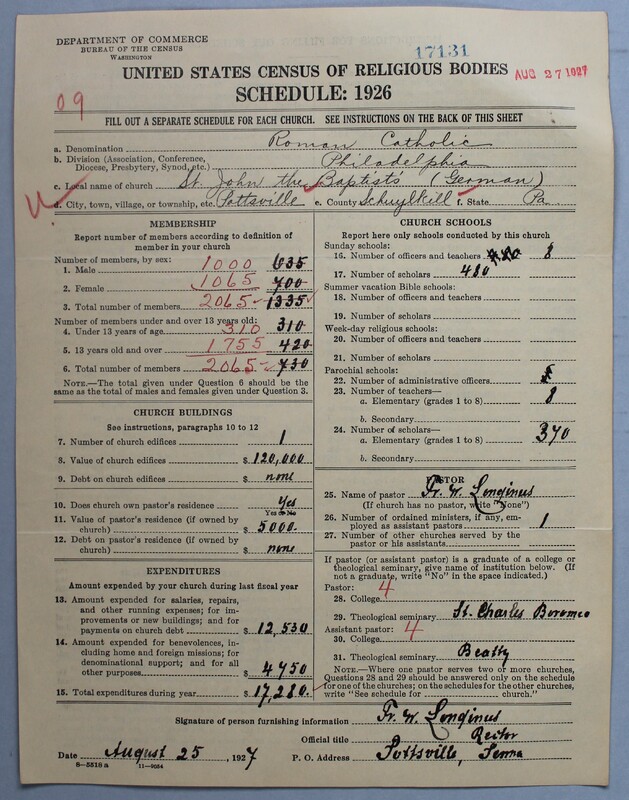 DEPARTMENT OF COMMERCE
BUREAU OF THE CENSUS
WASHINGTON
17131
UNITED STATES CENSUS OF RELIGIOUS BODIES
AUG 27 1927
SCHEDULE: 1926
09
FILL OUT A SEPARATE SCHEDULE FOR EACH CHURCH. SEE INSTRUCTIONS ON THE BACK OF THIS SHEET
a. Denomination Roman Catholic
b. Division (Association, Conference, Diocese, Presbytery, Synod, etc.) Philadelphia
c. Local name of church St. John the Baptist's (German)
d. City, town, village, or township, etc. Pottsville e. County Schuylkill f. State Pa.
MEMBERSHIP
Report number of members according to definition of
member in your church
Number of members, by sex:
1. Male 1000 635
2. Female 1065 700
3. Total number of members 2065 1335
Number of members under and over 13 years old:
4. Under 13 years of age 310 310
5. 13 years old and over 1755 420
6. Total number of members 2065 730
NOTE.—The total given under Question 6 should be
the same as the total of males and females given under Question 3.
CHURCH BUILDINGS
See instructions, paragraphs 10 to 12
7. Number of church edifices 1
8. Value of church edifices $ 120,000
9. Debt on church edifices $ none
10. Does church own pastor's residence Yes
Yes or No
11. Value of pastor's residence (if owned by
church) $ 5000.
12. Debt on pastor's residence (if owned by
church) $ none
EXPENDITURES
Amount expended by your church during last fiscal year
13. Amount expended for salaries, repairs,
and other running expenses; for im-
provements or new buildings; and for
payments on church debt $ 12,530
14. Amount expended for benevolences, in-
cluding home and foreign missions; for
denominational support; and for all
other purposes $ 4750
15. Total expenditures during year $ 17,280.
CHURCH SCHOOLS
Report here only schools conducted by this church
Sunday schools:
16. Number of officers and teachers 8
17. Number of scholars 480
Summer vacation Bible schools:
18. Number of officers and teachers
19. Number of scholars
Week-day religious schools:
20. Number of officers and teachers
21. Number of scholars
Parochial schools:
22. Number of administrative officers
23. Number of teachers—
a. Elementary (grades 1 to 8) 8
b. Secondary
24. Number of scholars—
a. Elementary (grades 1 to 8) 370
b. Secondary
PASTOR
25. Name of pastor Fr. W. Longinus
(If church has no pastor, write "None")
26. Number of ordained ministers, if any, em-
ployed as assistant pastors 1
27. Number of other churches served by the
pastor or his assistants
If pastor (or assistant pastor) is a graduate of a college or
theological seminary, give name of institution below. (If
not a graduate, write "No" in the space indicated.)
Pastor:
28. College 4
29. Theological seminary St. Charles Boromeo
Assistant pastor:
30. College 4
31. Theological seminary Beatty
NOTE.—Where one pastor serves two or more churches,
Questions 28 and 29 should be answered only on the schedule
for one of the churches; on the schedules for the other churches,
write "See schedule for church."
Signature of person furnishing information Fr. W. Longinus
Official title Rector
Date August 25, 1927 P. O. Address Pottsville, Penna
8—5518 a 11—9054